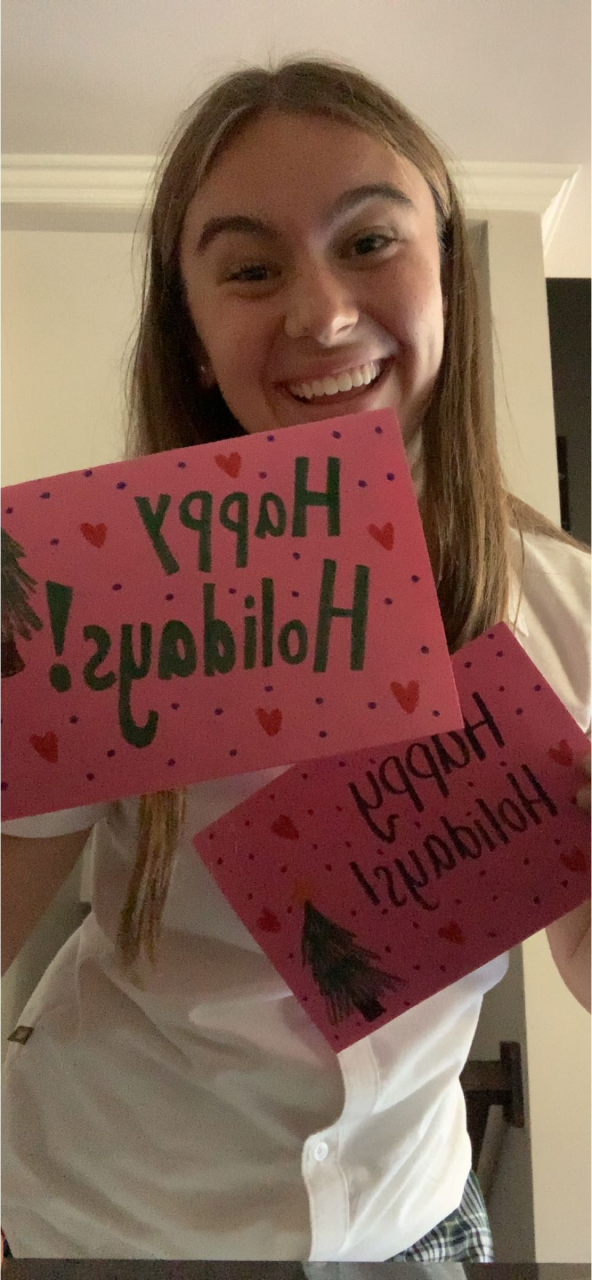 Happy
Holidays!
Happy
Holidays!